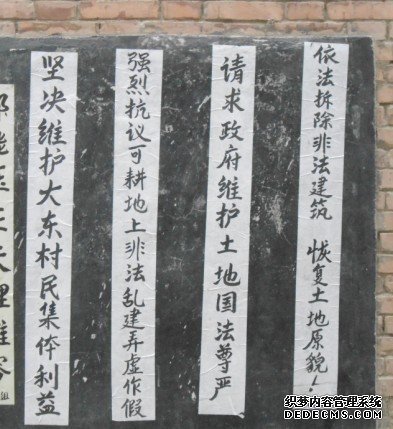 依法拆除非法建筑 恢复土地原貌！
请求政府维护土地国法尊严
强烈抗议可耕地上非法乱建弄虚作假
坚决维护大东村民集体利益
理难容
组
织梦内容管理系统
DEDECMS.COM